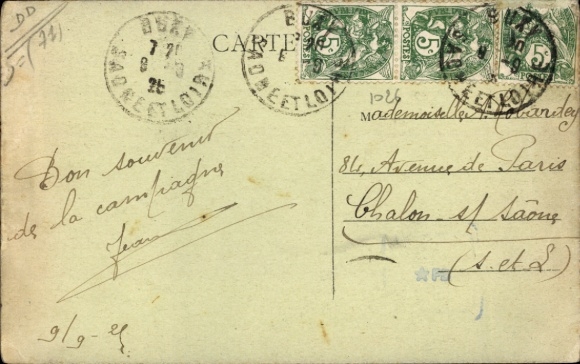 DD
5-(71)
BUXY
7 25
8 - 9
25
SAONE ET LOIRE
CARTE
BUXY
SAONE ET LOIRE
POSTES
5c
5c
5c
BUXY
SAONE ET LOIRE
1026
Mademoiselle A.
84, Avenue de Paris
Chalon s/ Saône
(S. et L)
Bon souvenir
de la campagne
Jean
9/9-25